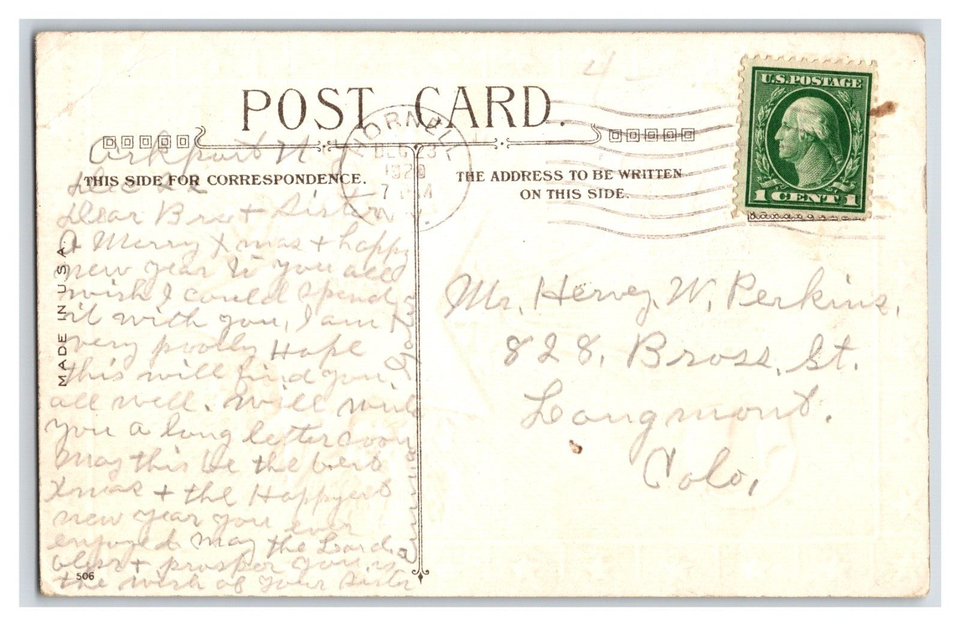 POST CARD.
THIS SIDE FOR CORRESPONDENCE.
THE ADDRESS TO BE WRITTEN
ON THIS SIDE.
U.S. POSTAGE
1 CENT 1
HORNELL
DEC 23
1920
7 M
N.Y.
Arkport N
Dear Bro + Sister
A Merry Xmas + happy
new year to you all
wish I could spend
it with you, I am
very poorly Hope
this will find you
all well. will write
you a long letter soon
May this be the best
Xmas + the Happyest
new year you ever
enjoyed may the Lord
bless + prosper you is
the wish of your Sister
MADE IN U.S.A.
506
Mr. Hervey. W. Perkins.
828, Bross, St.
Longmont.
Colo,